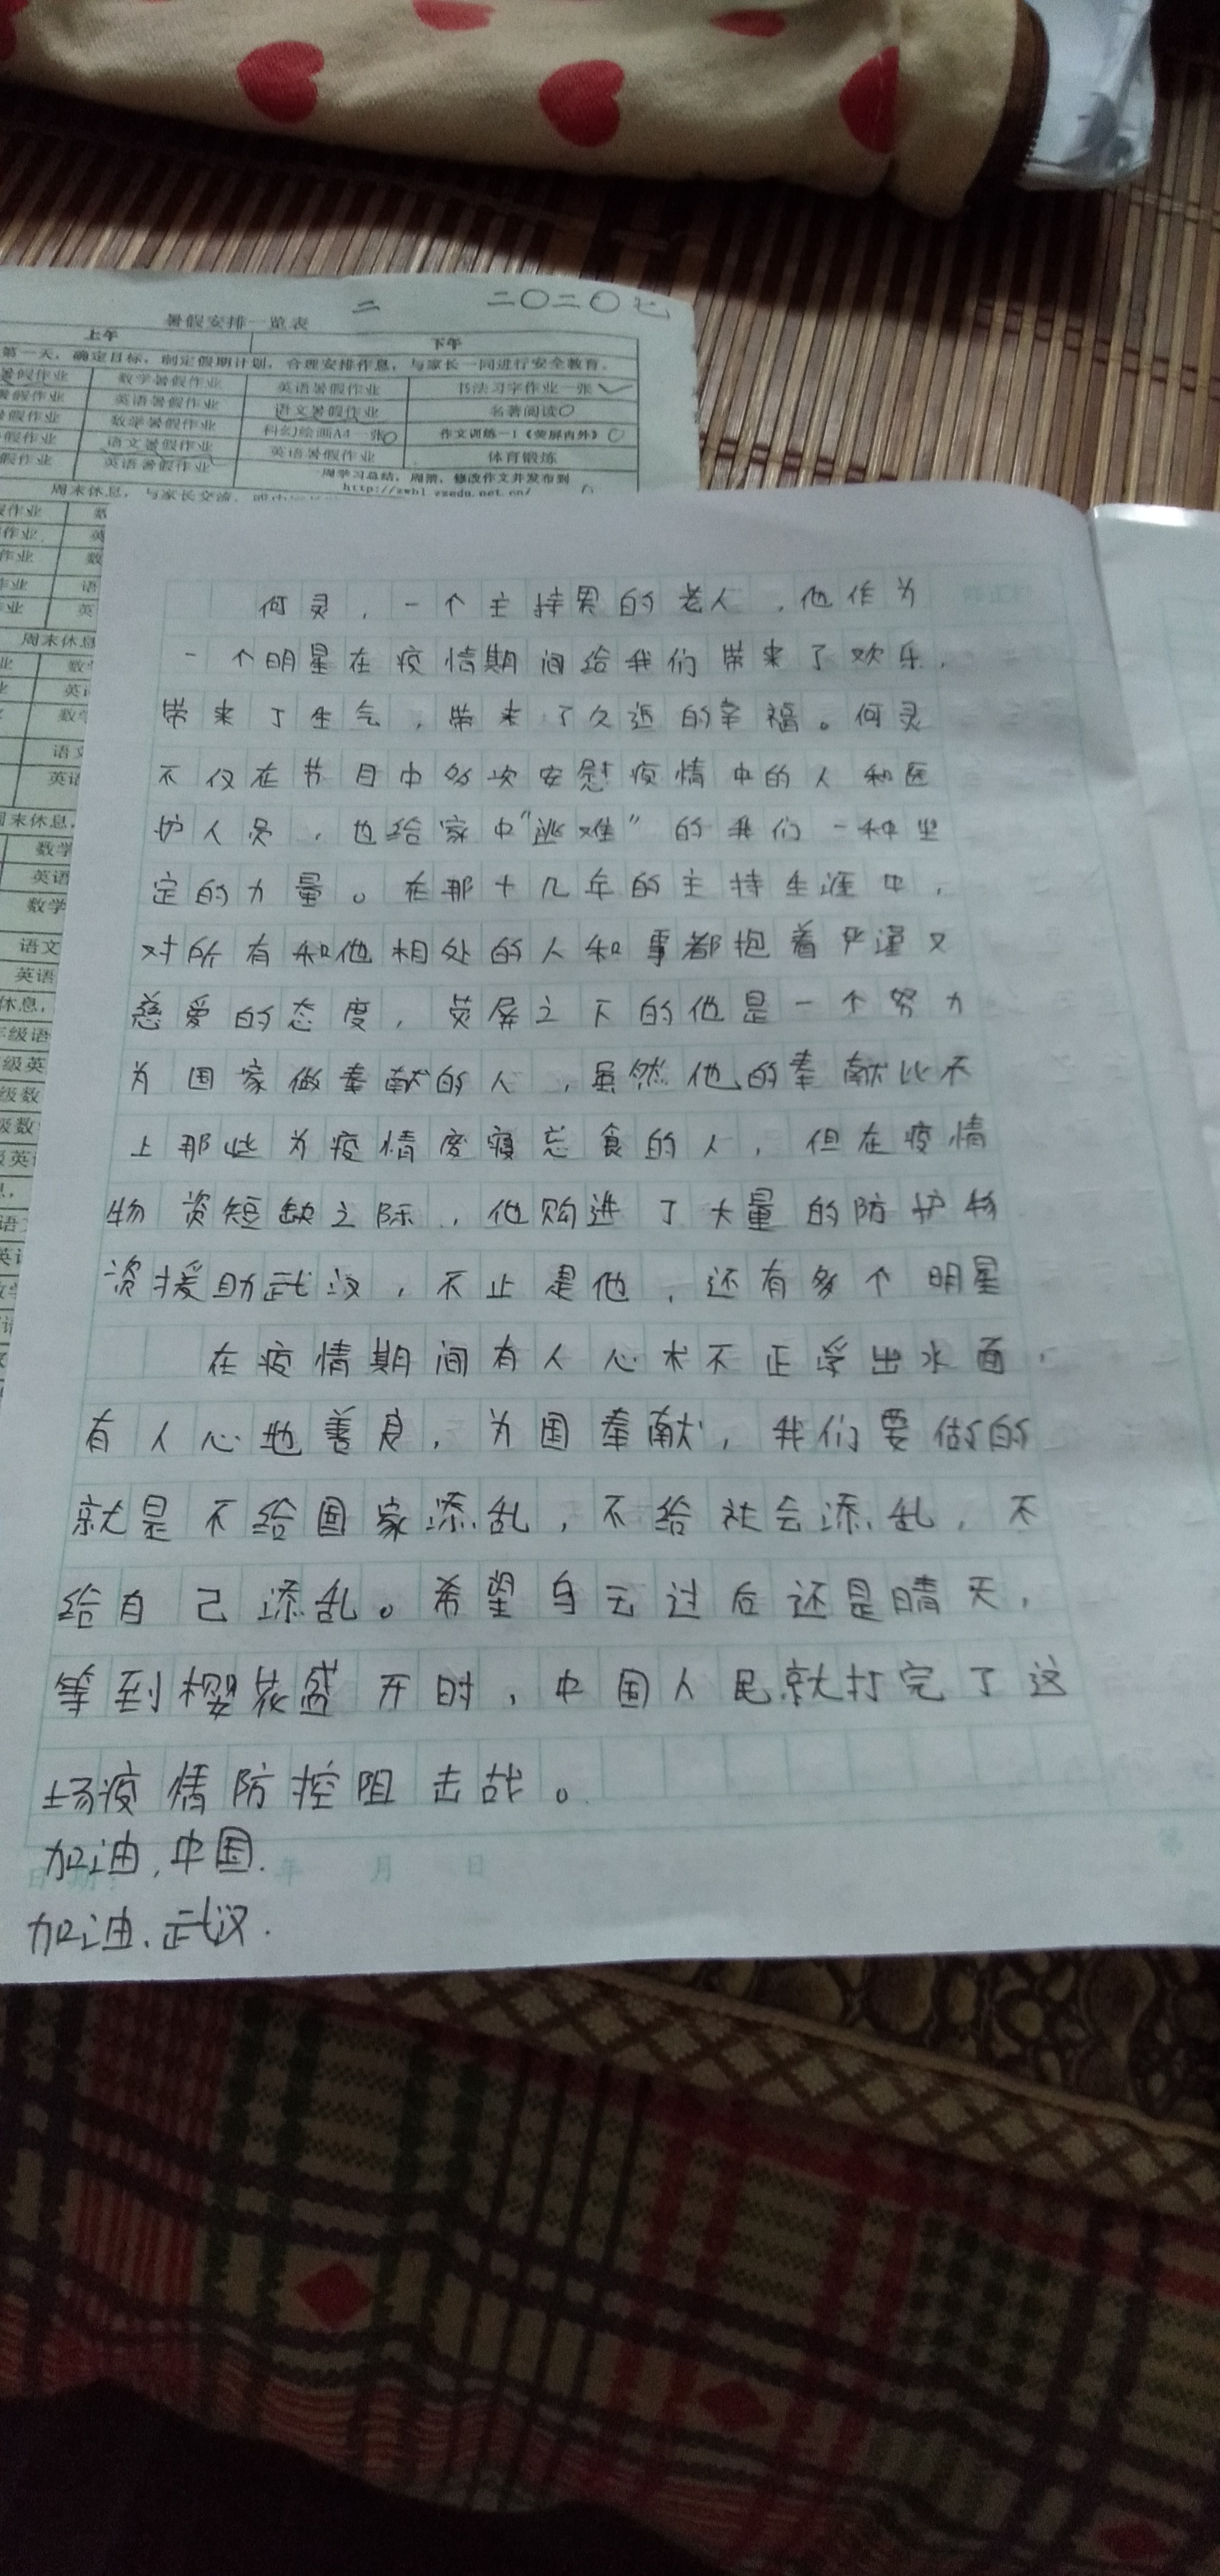 二 二〇二〇七
暑假安排一览表
上午 下午
第一天，确定目标，制定假期计划，合理安排作息，与家长一同进行安全教育。
暑假作业 数学暑假作业 英语暑假作业 书法习字作业一张
暑假作业 英语暑假作业 语文暑假作业 名著阅读
假作业 数学暑假作业 科幻绘画A4一张 作文训练-1《荧屏内外》
假作业 语文暑假作业 英语暑假作业 体育锻炼
假作业 英语暑假作业 周学习总结，周测，修改作文并发布到
http://zwhl.yzedu.net.cn/
周末休息，与家长交流，
作业 数
作业 英
作业 数
作业 语
业 英
周末休息
业 数学
英语
数学
语文
英语
周末休息，
数学
英语
数学
语文
英语
休息，
年级语
级英
级数
级数
级英
何炅，一个主持界的老人，他作为
一个明星在疫情期间给我们带来了欢乐，
带来了生气，带来了久违的幸福。何炅
不仅在节目中多次安慰疫情中的人和医
护人员，也给家中“逃难”的我们一种坚
定的力量。在那十几年的主持生涯中，
对所有和他相处的人和事都抱着严谨又
慈爱的态度，荧屏之下的他是一个努力
为国家做奉献的人，虽然他的奉献比不
上那些为疫情废寝忘食的人，但在疫情
物资短缺之际，他购进了大量的防护物
资援助武汉，不止是他，还有多个明星
在疫情期间有人心术不正浮出水面，
有人心地善良，为国奉献，我们要做的
就是不给国家添乱，不给社会添乱，不
给自己添乱。希望乌云过后还是晴天，
等到樱花盛开时，中国人民就打完了这
场疫情防控阻击战。
加油，中国.
日期： 年 月 日 第
加油、武汉.